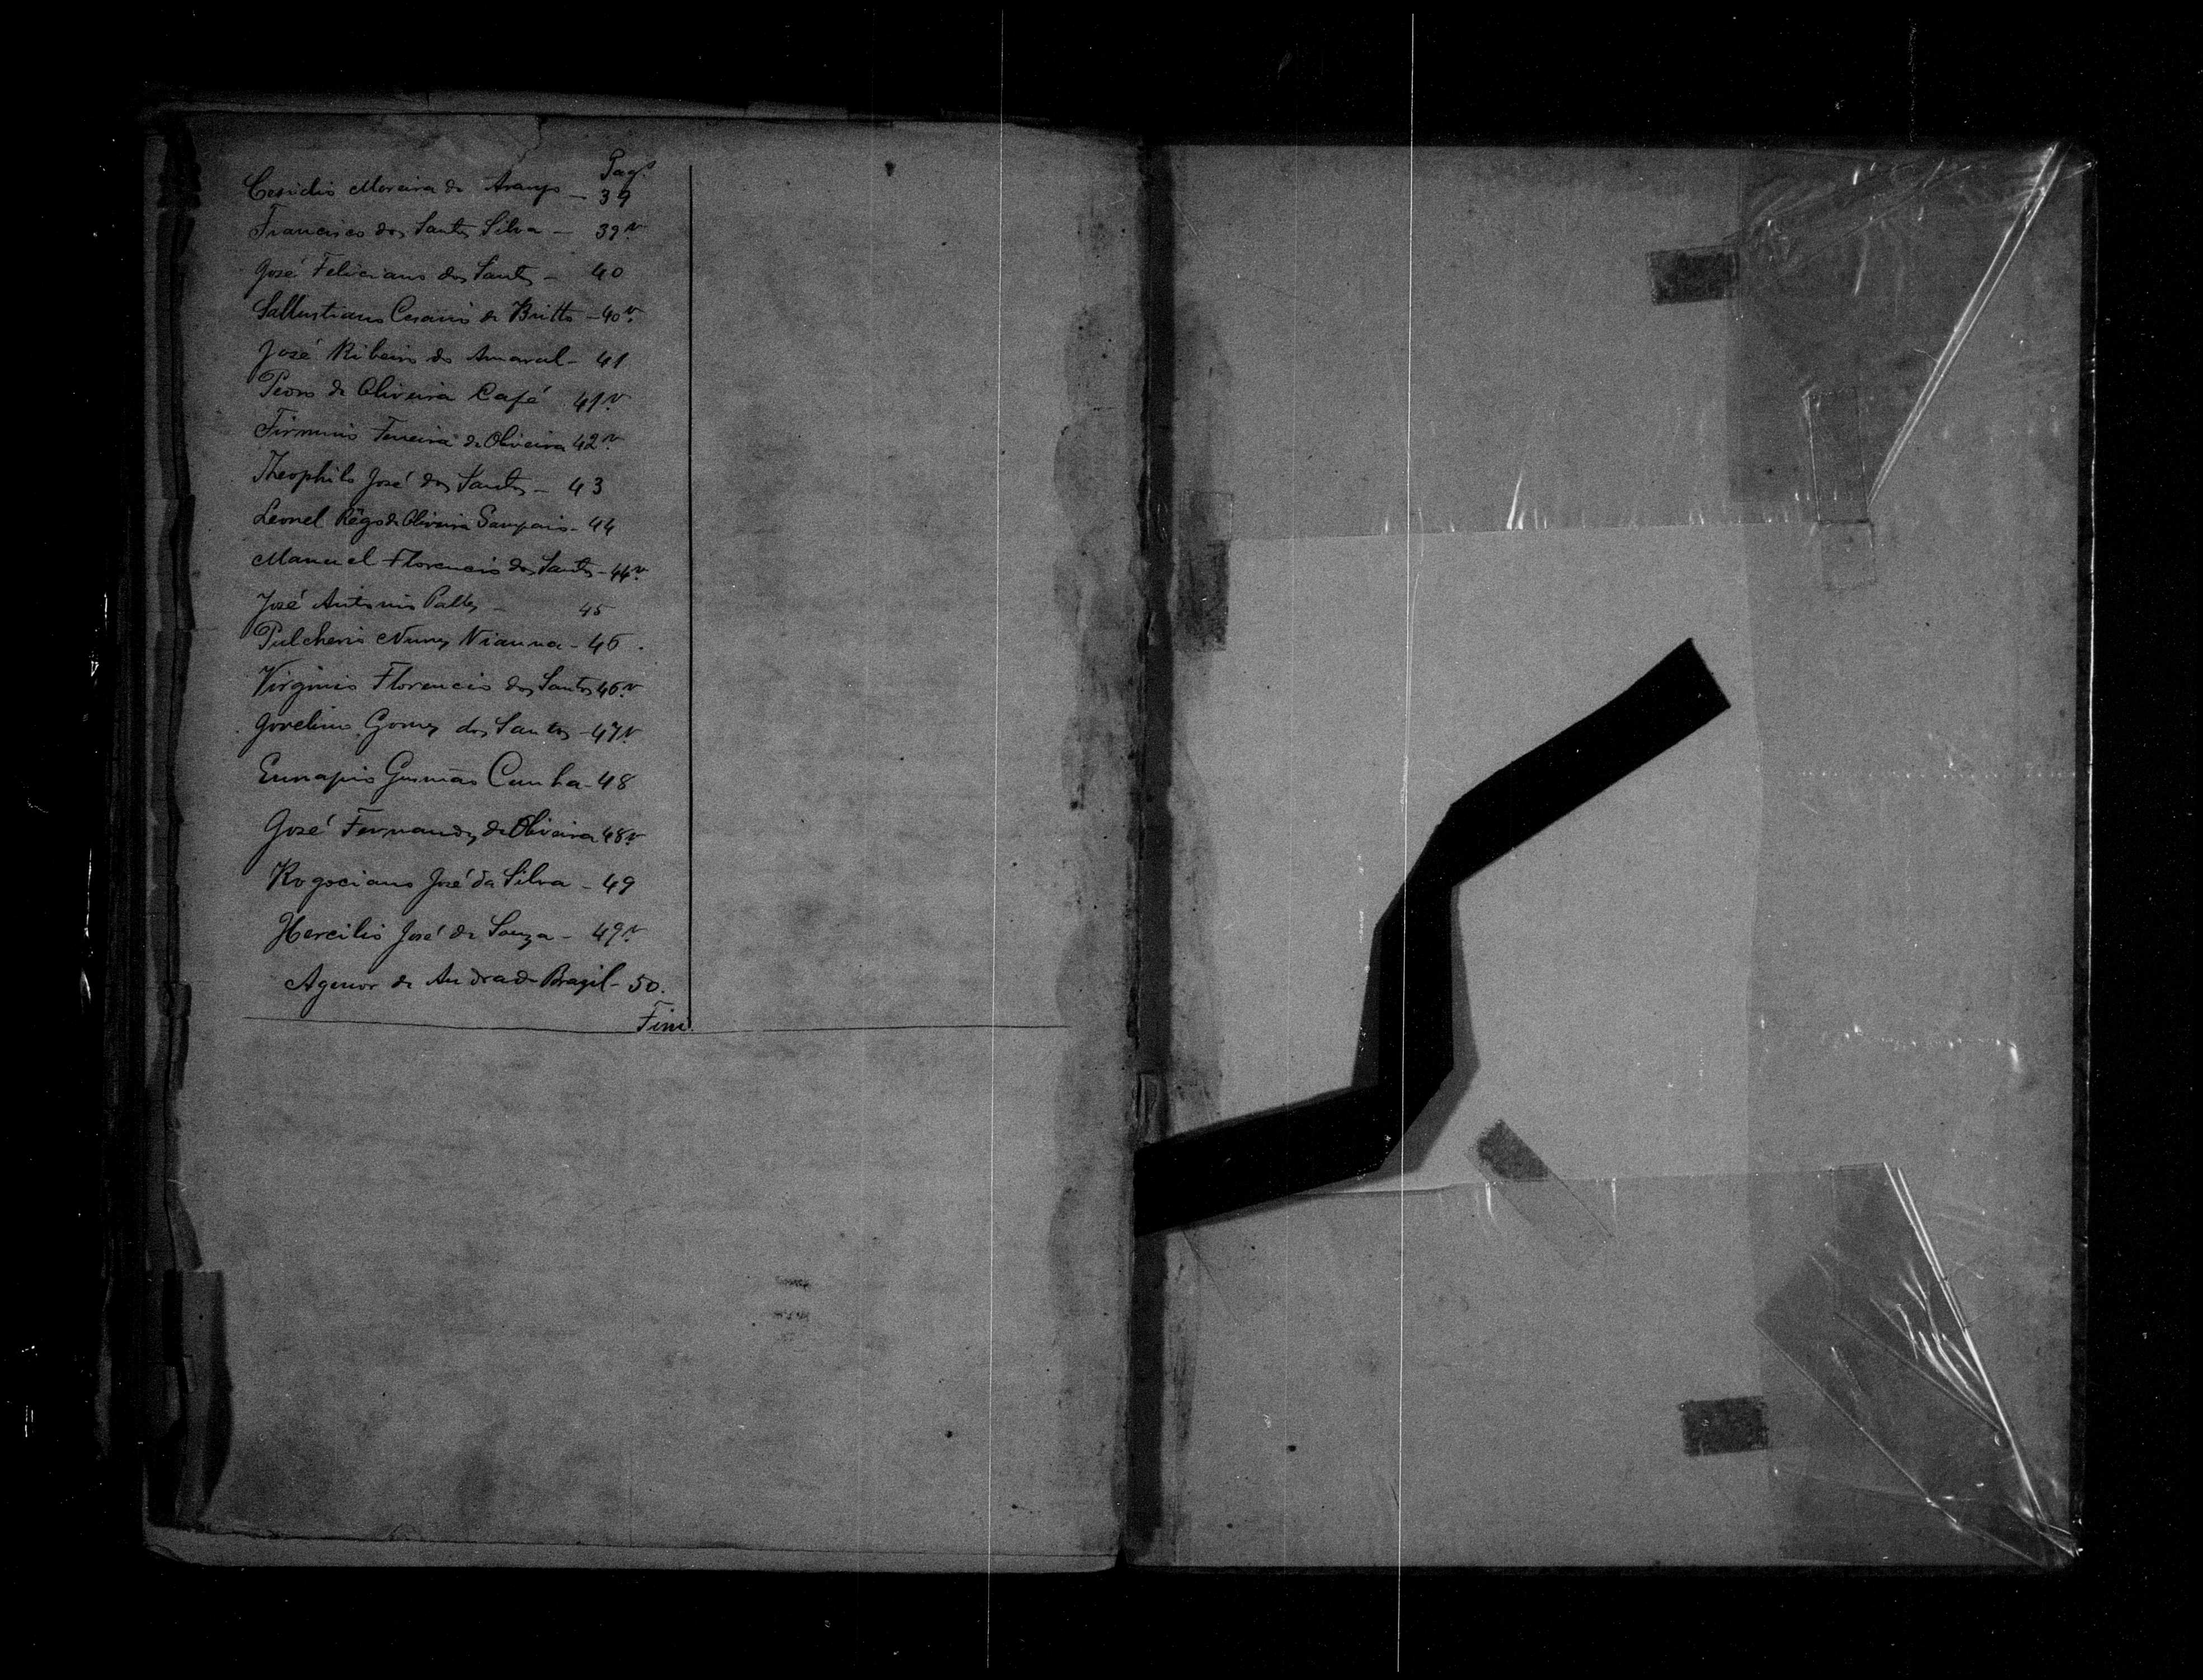 Pag.s
Cesidio Moreira de Araujo — 39
Francisco dos Santos Silva — 39v.
José Feliciano dos Santos — 40
Sallustiano Cesario de Britto — 40v.
José Ribeiro do Amaral — 41
Pedro de Oliveira Café 41v.
Firmino Ferreira de Oliveira 42v.
Theophilo José dos Santos — 43
Leonel Rêgo de Oliveira Sampaio - 44
Manuel Florencio dos Santos - 44v.
José Antonio — 45
Pulcherio Nunes Vianna - 46.
Virginio Florencio dos Santos 46v.
Jovelino Gomes dos Santos - 47v.
Eunapio Gusmão Cunha - 48
José Fernandes de Oliveira 48v.
Rogociano José da Silva - 49
Hercilio José de Souza - 49v.
Agenor de Andrade Brazil - 50.
Fim.